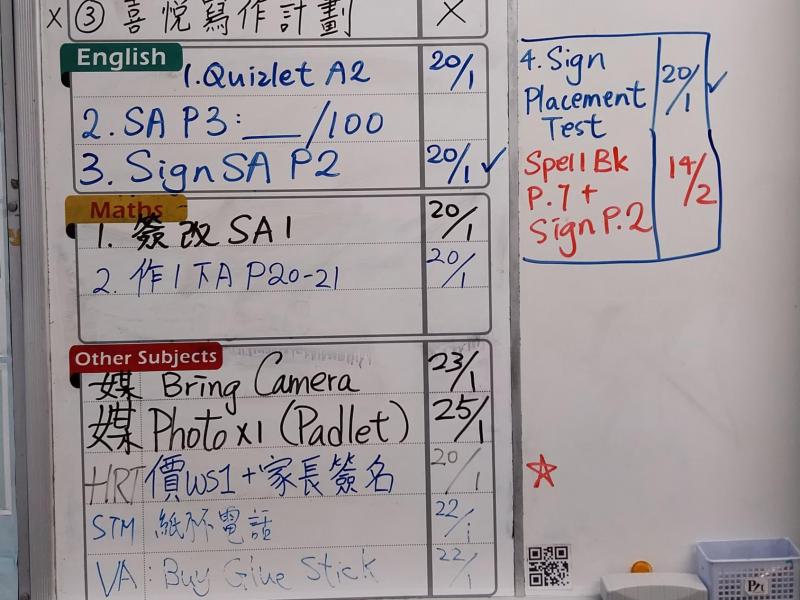 x ③ 喜悅寫作計劃 X
English
1. Quizlet A2 20/1
2. SA P3: ___/100
3. Sign SA P2 20/1 ✓
4. Sign Placement Test 20/1 ✓
Spell Bk P.7 + Sign P.2 14/2
Maths
1. 簽改 SA1 20/1
2. 作1下A P20-21 20/1
Other Subjects
媒 Bring Camera 23/1
媒 Photo x1 (Padlet) 25/1
HRT 價WS1+家長簽名 20/1
STM 紙杯電話 22/1
VA: Buy Glue Stick 22/1